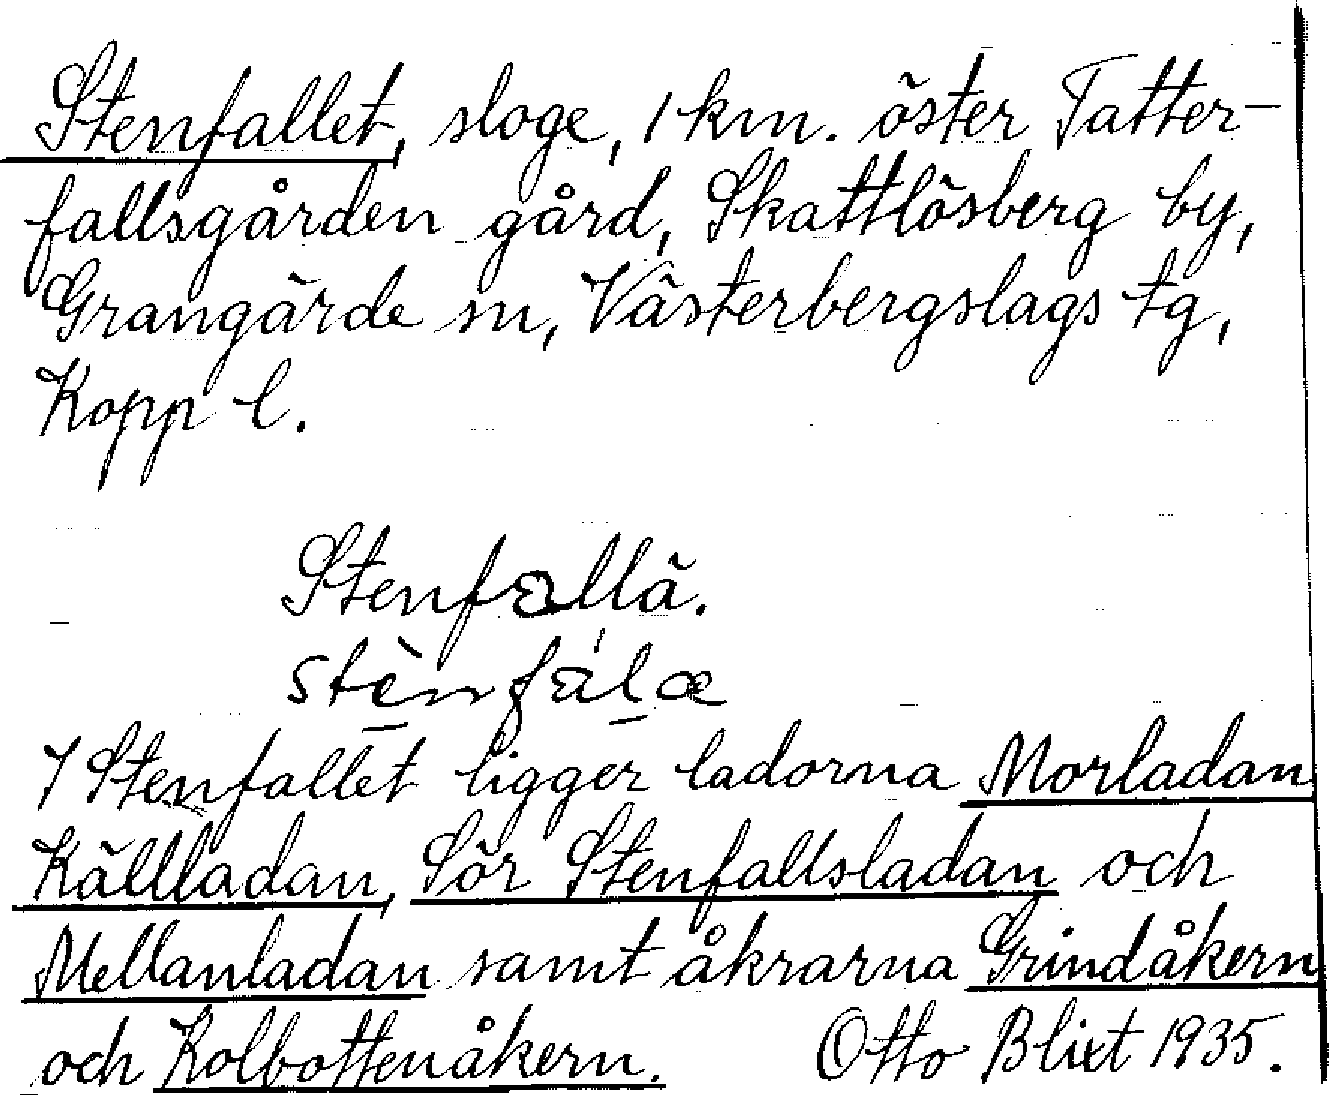 Stenfallet, sloge, 1 km. öster Tatter-
fallsgården gård, Skattlösberg by,
Grangärde sn, Västerbergslags tg,
Kopp l.
Stenfallä.
stènfálæ
I Stenfallet ligger ladorna Morladan
Källladan, Sör Stenfallsladan och
Mellanladan samt åkrarna Grindåkern
och Kolbottenåkern. Otto Blixt 1935.